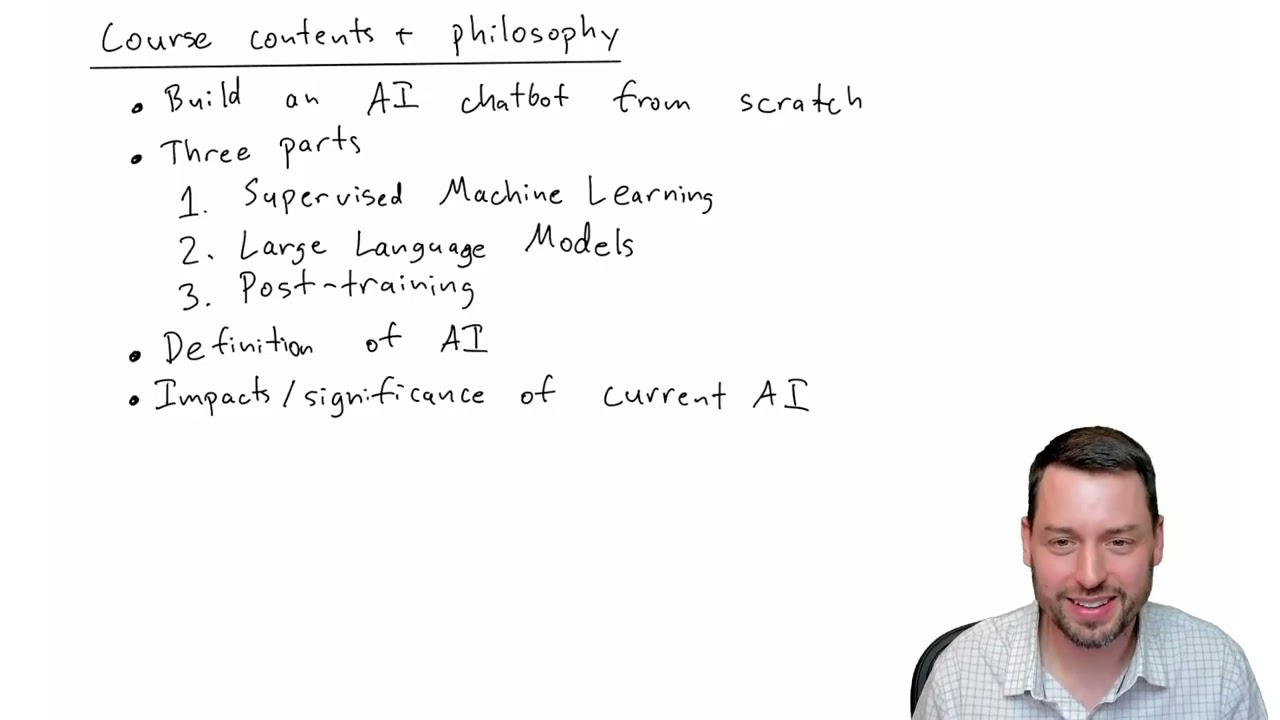 Course contents + philosophy
• Build an AI chatbot from scratch
• Three parts
1. Supervised Machine Learning
2. Large Language Models
3. Post-training
• Definition of AI
• Impacts/significance of current AI